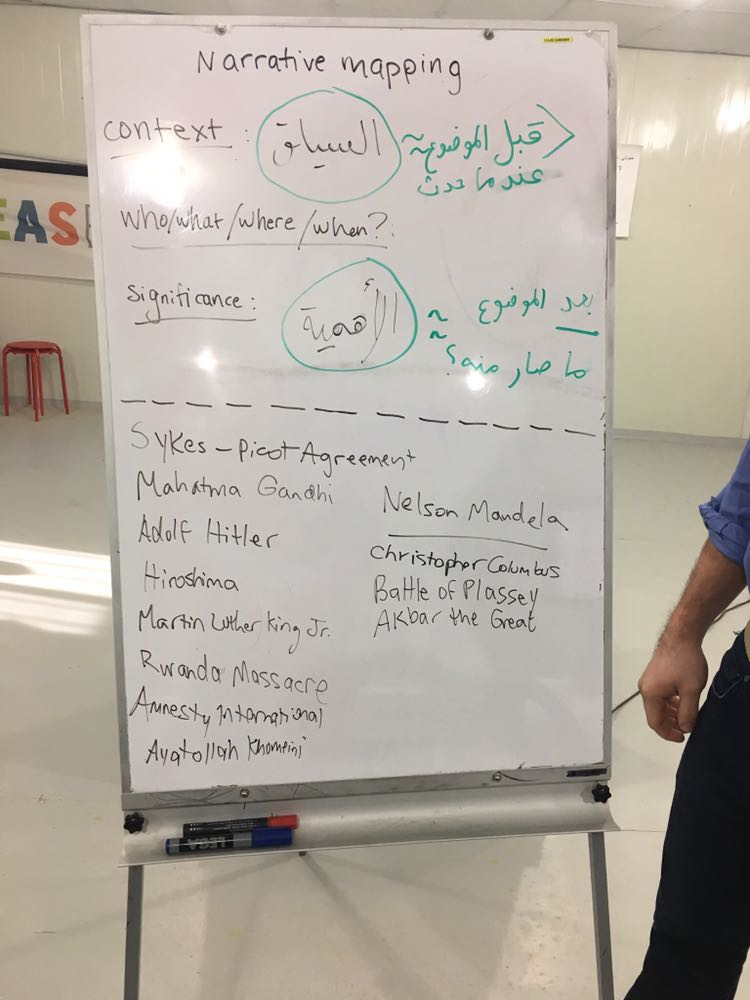 Narrative mapping
context : السياق ~ قبل الموضوع
عندما حدث
who/what/where/when?
significance : الأهمية ~ بعد الموضوع
~ ما صار منه؟
Sykes-Picot Agreement
Mahatma Gandhi
Adolf Hitler
Hiroshima
Martin Luther King Jr.
Rwanda Massacre
Amnesty International
Ayatollah Khomeini
Nelson Mandela
Christopher Columbus
Battle of Plassey
Akbar the Great
EASE
LEGA